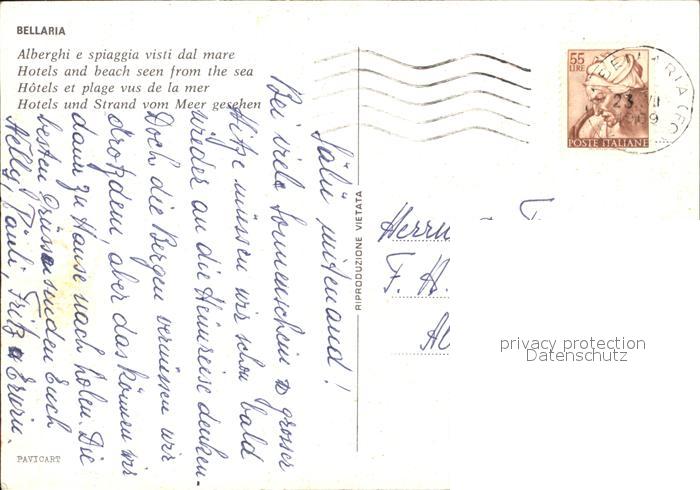 BELLARIA
Alberghi e spiaggia visti dal mare
Hotels and beach seen from the sea
Hôtels et plage vus de la mer
Hotels und Strand vom Meer gesehen
Sälü mitenand!
Bei viel Sonnenschein & grosser
Hitze müssen wir schon bald
wieder an die Heimreise denken.
Doch die Bergen vermissen wir
trotzdem, aber das können wir
dann zu Hause nach holen. Die
besten Grüsse senden Euch
Nelly, Päuli, Fritz & Erwin.
PAVICART
RIPRODUZIONE VIETATA
55
LIRE
POSTE ITALIANE
BELLARIA (FO)
23. VII
Herrn
F. H.
privacy protection
Datenschutz